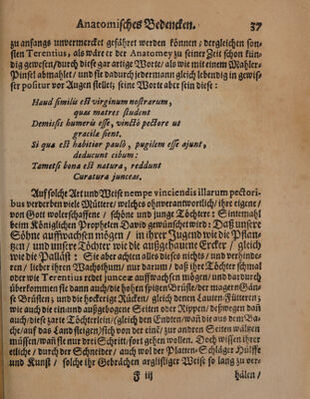 Anatomisches Bedencken. 37
zu anfangs unvermercket gefähret werden können / dergleichen son-
sten Terentius, als wäre er der Anatomey zu seiner Zeit schon kün-
dig gewesen / durch diese gar artige Worte / als wie mit einem Mahler-
Pinsel abmahlet / und sie dadurch jedermann gleich lebendig in gewis-
ser positur vor Augen stellet; seine Worte aber sein diese:
Haud similis est virginum nostrarum,
quas matres student
Demissis humeris esse, vincto pectore ut
gracilæ sient.
Si qua est habitior paulò, pugilem esse ajunt,
deducunt cibum:
Tametsi bona est natura, reddunt
Curatura junceas.
Auf solche Art und Weise nempe vinciendis illarum pectori-
bus verderben viele Müttern / welches ohnverantwortlich / ihre eigene /
von Gott wolerschaffene / schöne und junge Töchter: Sintemahl
beim Königlichen Propheten David gewünschet wird: Daß unsere
Söhne auffwachsen mögen / in ihrer Jugend wie die Pflan-
tzen / und unsere Töchter wie die außgehauene Ercker / gleich
wie die Palläst: Sie aber achten alles dieses nichts / und verhin-
den / lieber ihren Wachsthum / nur darum / daß ihre Töchter schmal
oder wie Terentius redet junceæ aufwachsen mögen / und dadurch
überkommen sie dann auch / die hohen spitzen Brüste / der magern Gän-
se Brüsten; und die hockerige Rücken / gleich denen Lauten-Füttern;
wie auch die ein und außgebogene Seiten oder Rippen / deßwegen dañ
auch / diese zarte Töchterlein / (gleich den Endten / wañ die aus dem Ba-
che / auf das Land steigen /) sich von der einē / zur andern Seiten wältzen
müssen / wañ sie nur drei Schritt / fort gehen wollen. Doch wissen ihrer
etliche / durch der Schneider / auch wol der Platten-Schläger Hülffe
und Kunst / solche ihr Gebrächen arglistiger Weise so lang zu ver-
F iij hälen /